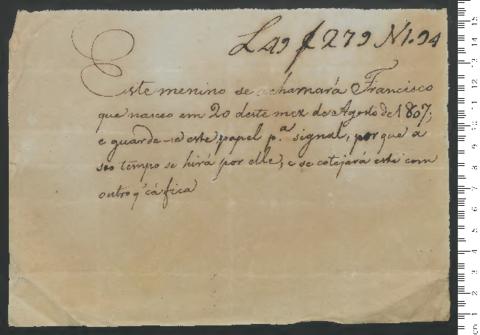 L49 f 279 N1.94
Este menino se chamará Francisco
que nasceo em 20 deste mez de Agosto de 1807;
e guarde-se este papel p.ª signal, porque a
seo tempo se hirá por elle, e se cotejará este com
outro q' cá fica